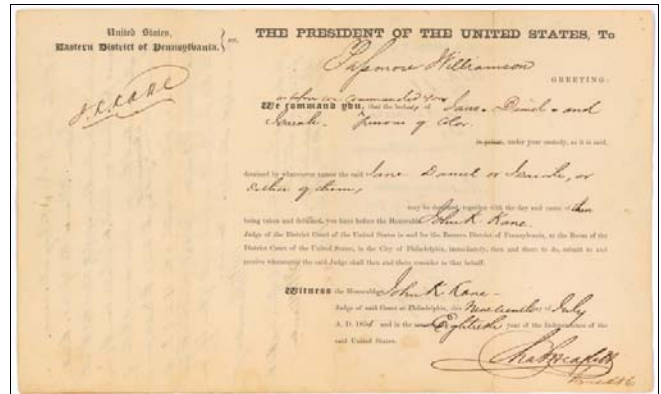 United States,
Eastern District of Pennsylvania.
THE PRESIDENT OF THE UNITED STATES, To
J.K.KANE
Passmore Williamson
GREETING:
as before we commanded you
We command you, that the bodies of Jane - Daniel - and
Isaiah - Persons of Color
in prison, under your custody, as it is said,
detained by whatsoever names the said Jane Daniel or Isaiah, or
either of them,
may be detained, together with the day and cause of their
being taken and detained, you have before the Honorable John K. Kane
Judge of the District Court of the United States in and for the Eastern District of Pennsylvania, at the Room of the
District Court of the United States, in the City of Philadelphia, immediately, then and there to do, submit to and
receive whatsoever the said Judge shall then and there consider in that behalf.
Witness the Honorable John K Kane -
Judge of said Court at Philadelphia, this Nineteenth of July
A. D. 185 and in the Eightieth year of the Independence of the
said United States.